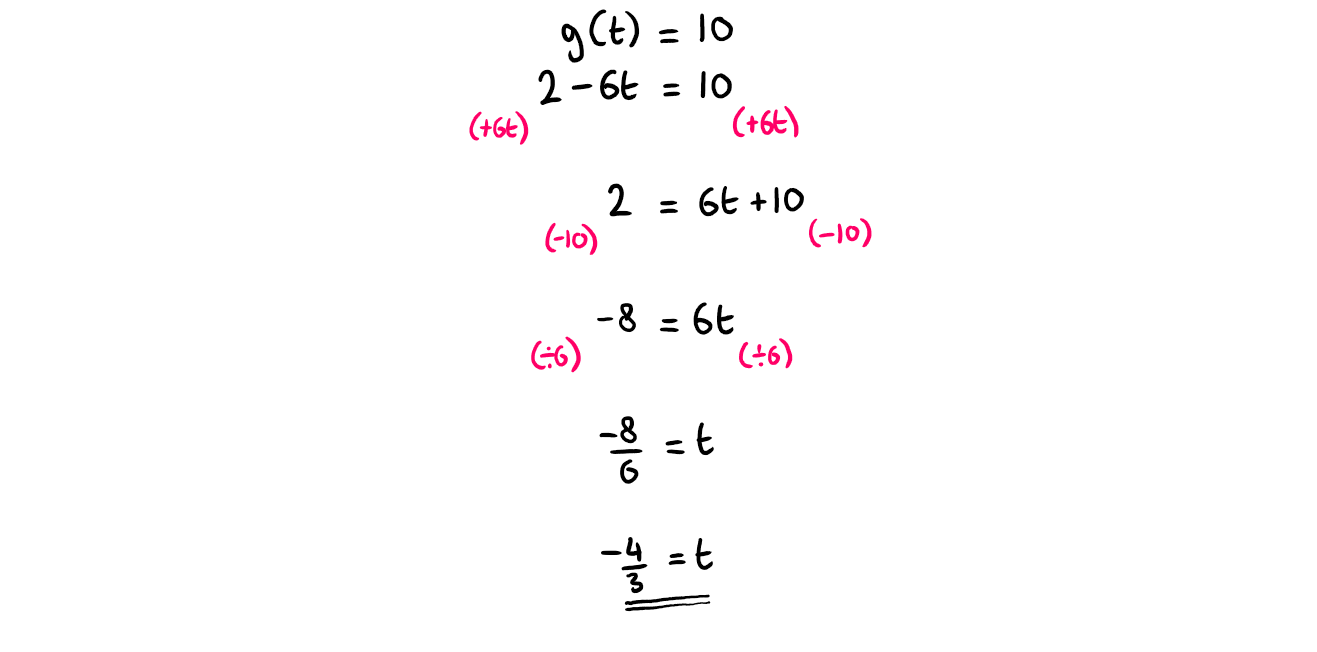 g(t) = 10
2 - 6t = 10
(+6t) (+6t)
2 = 6t + 10
(-10) (-10)
-8 = 6t
(÷6) (÷6)
-8/6 = t
-4/3 = t